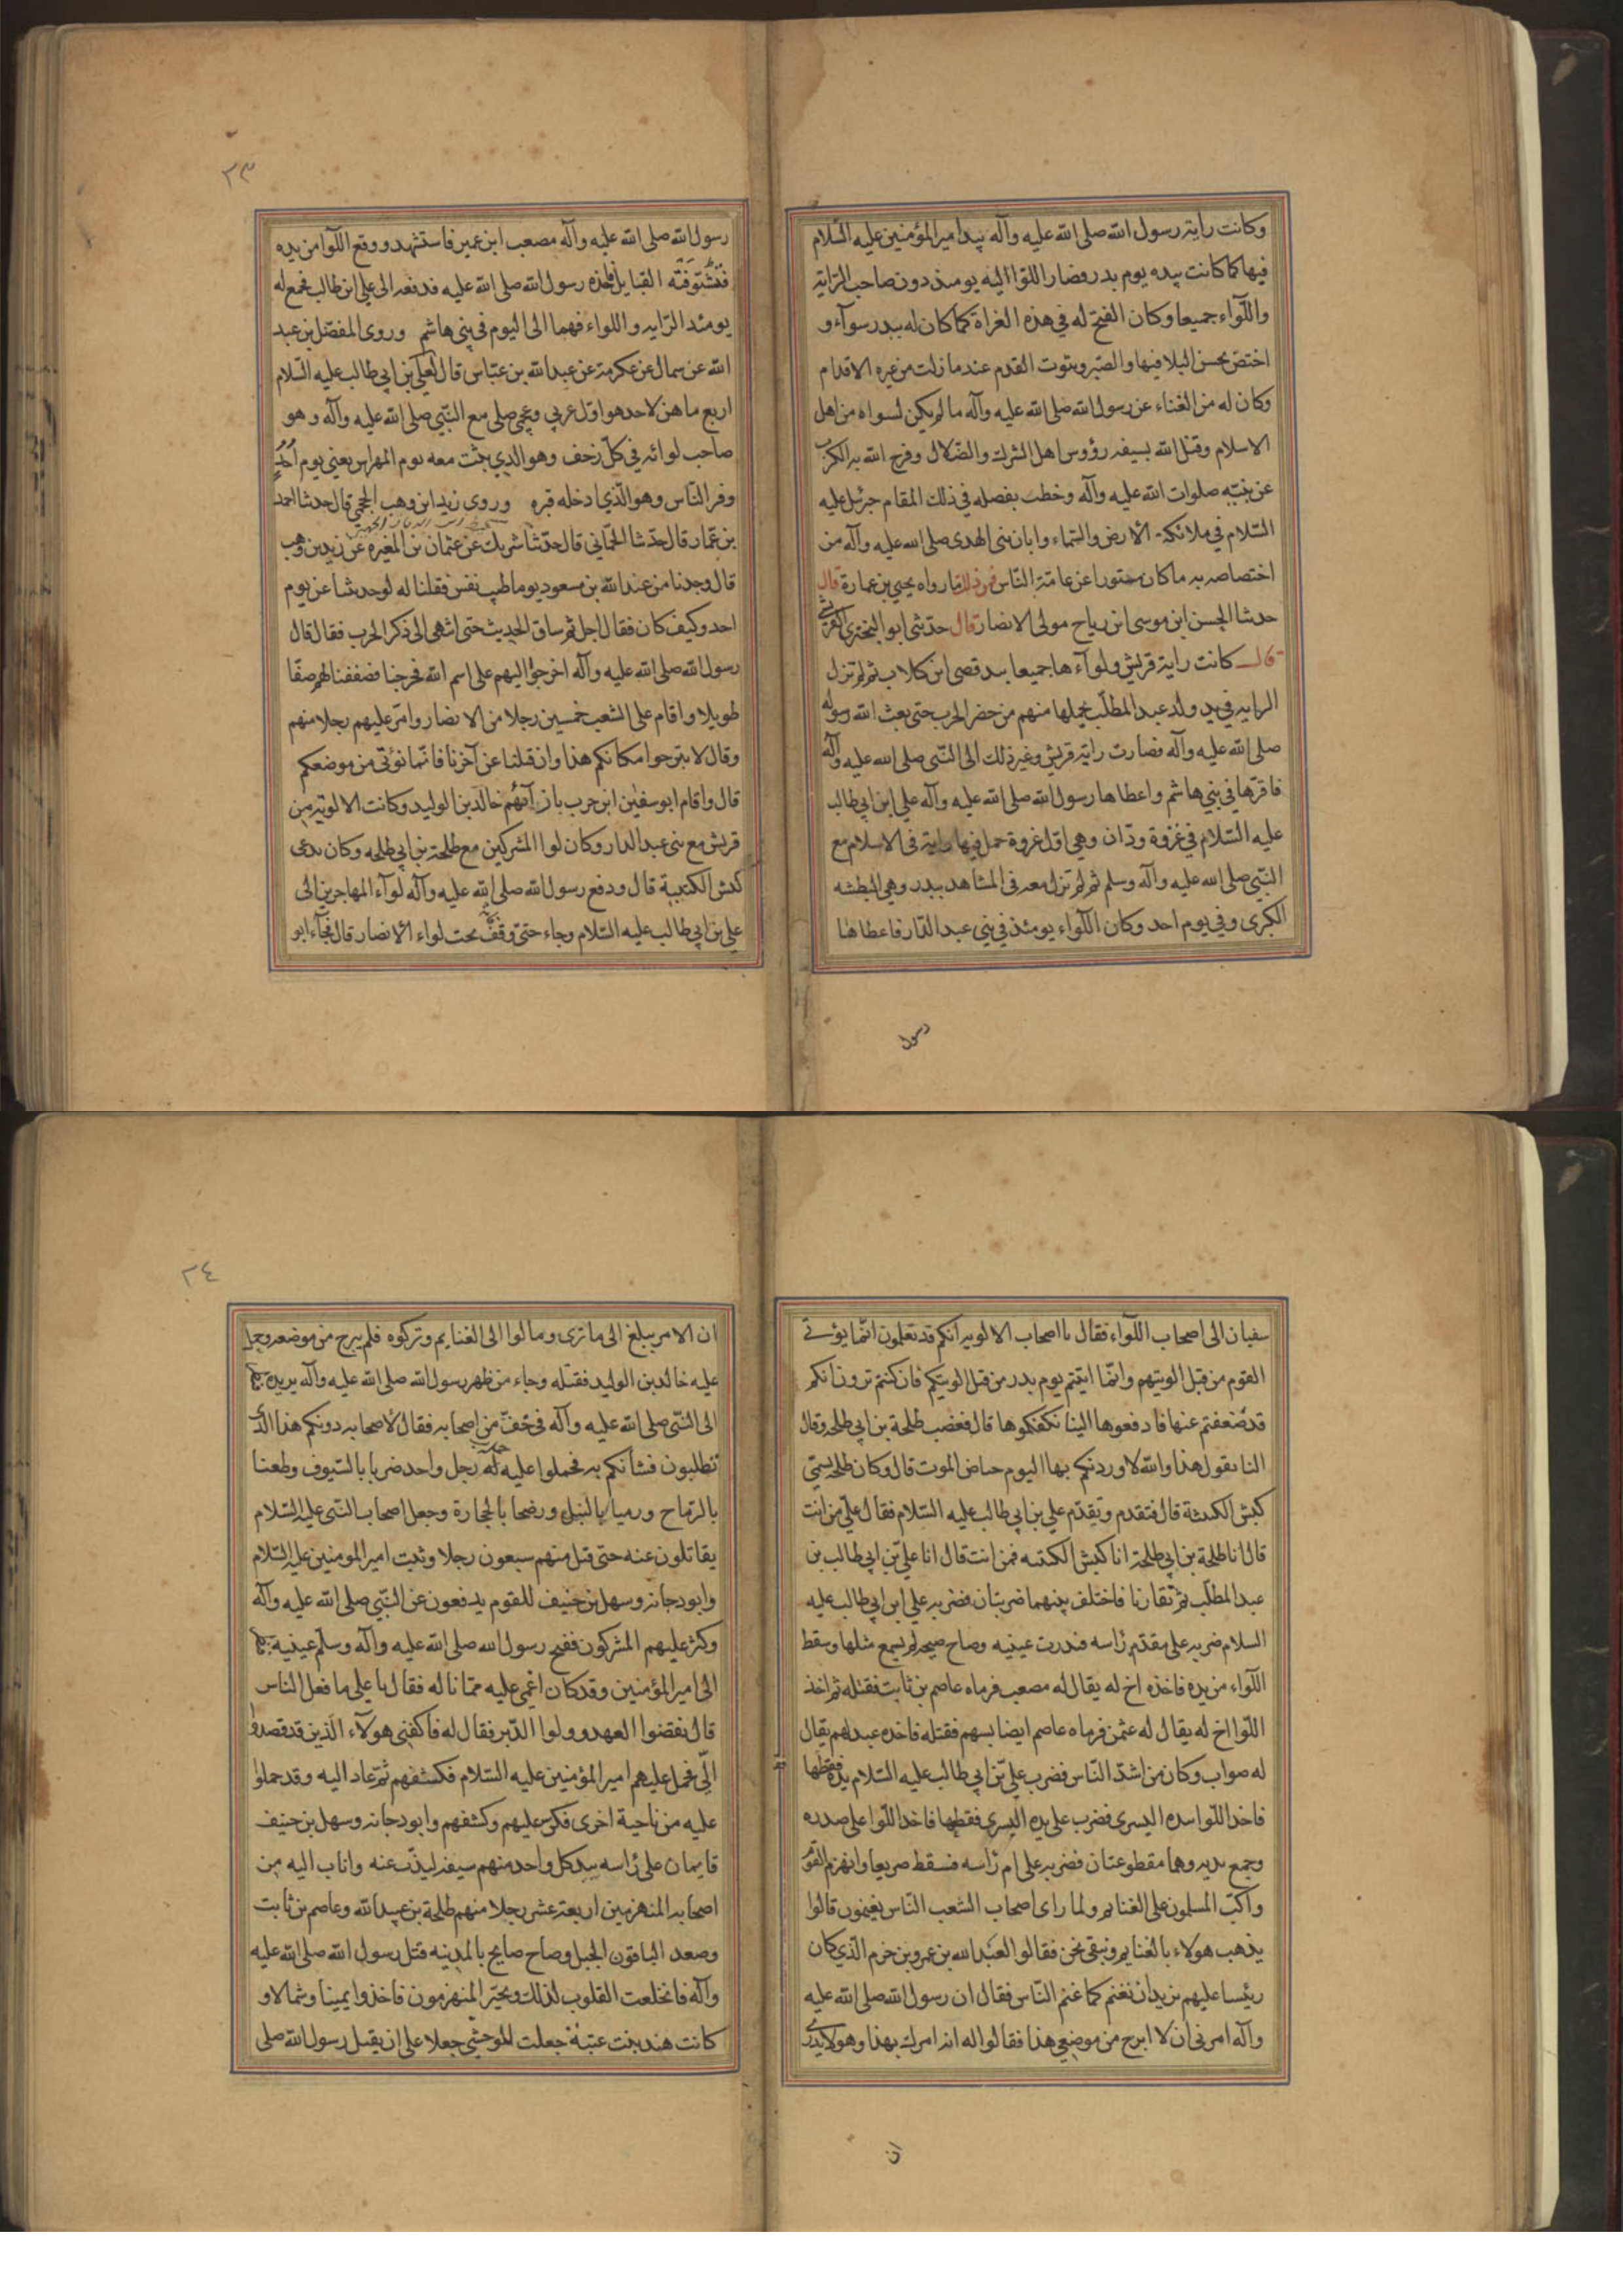 وكانت راية رسول الله صلى الله عليه وآله بيد امير المؤمنين عليه السّلام
فيها كما كانت بيده يوم بدر وصار اللوا اليه يومئذ دون صاحب الرّاية
واللّوآء جميعا وكان الفتح له في هذه الغزاة كما كان له ببدر سوآء و
اختصّ بحسن البلا فيها والصّبر وثبوت القدم عند ما زلت من غيره الاقدام
وكان له من الغناء عن رسول الله صلى الله عليه وآله ما لم يكن لسواه من اهل
الاسلام وقتل الله بسيفه رؤوس اهل الشرك والضلال وفرج الله به الكرب
عن نبيّه صلوات الله عليه وآله وخطب بفضله في ذلك المقام جبرئيل عليه
السّلام في ملائكة الأرض والسّماء وابان نبي الهدى صلى الله عليه وآله من
اختصاصه به ما كان مستورا عن عامّة النّاس فمن ذلك ما رواه يحيى بن عمارة قال
حدثنا الحسن ابن موسى ابن رياح مولى الانصار قال حدّثني ابو البختري القرشي
قال كانت راية قريش ولوآءها جميعا بيد قصى ابن كلاب ثم لم تزل
الرايه في يد ولد عبد المطلّب يحملها منهم من حضر الحرب حتى بعث الله رسوله
صلى الله عليه وآله فصارت راية قريش وغير ذلك الى النّبي صلى الله عليه وآله
فاقرّها في بني هاشم واعطاها رسول الله صلى الله عليه وآله علي ابن ابي طالب
عليه السّلام في غزوة ودّان وهي اوّل غزوة حمل فيها راية في الاسلام مع
النّبي صلى الله عليه وآله وسلم ثم لم تزل معه في المشاهد ببدر وهي البطشه
الكبرى وفي يوم احد وكان اللّواء يومئذ في بني عبد الدّار فاعطاها
رسول
٢٣
رسول الله صلى الله عليه وآله مصعب ابن عمير فاستشهد ووقع اللّوا من يده
فتشوّفته القبايل فاخذه رسول الله صلى الله عليه فدفعه الى علي ابن طالب فجمع له
يومئذ الرّايه واللواء فهما الى اليوم في بني هاشم وروى المفضّل بن عبد
الله عن سمال عن عكرمة عن عبد الله بن عبّاس قال لعلي بن ابي طالب عليه السّلام
اربع ما هنّ لاحد هو اوّل عربي وعجمي صلى مع النّبي صلى الله عليه وآله وهو
صاحب لوائه في كلّ زحف وهو الذي ثبت معه يوم المهراس يعني يوم أُحُدٍ
وفر النّاس وهو الّذي ادخله قبره وروى زيد ابن وهب الجحمي قال حدثنا احمد
بن عمّار قال حدّثنا الحمّاني قال حدّثنا شريك عن عثمان بن المغيره عن زيد بن وهب
قال وجدنا من عبد الله بن مسعود يوما طيب نفس فقلنا له لو حدثتنا عن يوم
احد وكيف كان فقال اجل ثم ساق الحديث حتى انتهى الى ذكر الحرب فقال قال
رسول الله صلى الله عليه وآله اخرجوا اليهم على اسم الله فخرجنا فصففنا لهم صفّا
طويلا واقام على الشعب خمسين رجلا من الانصار وامّر عليهم رجلا منهم
وقال لا تبرحوا مكانكم هذا وان قتلنا عن آخرنا فانّما نؤتى من موضعكم
قال واقام ابو سفين ابن حرب بازآئهم خالد بن الوليد وكانت الالوية من
قريش مع بني عبد الدار وكان لوا المشركين مع طلحة بن ابي طلحه وكان يدعى
كبش الكتيبة قال ودفع رسول الله صلى الله عليه وآله لوآء المهاجرين الى
علي بن ابي طالب عليه السّلام وجاء حتى وقف تحت لواء الأنصار قال فجآء ابو
سفيان الى اصحاب اللّواء فقال يا اصحاب الالويه انكم قد تعلمون انّما يؤتى
القوم من قبل الويتهم وانّما اتيتم يوم بدر من قبل الويتكم فان كنتم ترون انكم
قد ضعفتم عنها فادفعوها الينا نكفكموها قال فغضب طلحة بن ابي طلحه وقال
النا تقول هذا والله لاوردنكم بها اليوم حياض الموت قال وكان طلحه يسمّى
كبش الكتيبة قال فتقدم وتقدّم علي بن ابي طالب عليه السّلام فقال عليّ من انت
قال انا طلحة بن ابي طلحة انا كبش الكتيبه فمن انت قال انا علي بن ابي طالب بن
عبد المطلّب ثم تقاربا فاختلف بينهما ضربتان فضربه علي ابن ابي طالب عليه
السلام ضربه على مقدّم رأسه فندرت عينيه وصاح صيحه لم يسمع مثلها وسقط
اللّواء من يده فاخذه اخ له يقال له مصعب فرماه عاصم بن ثابت فقتله ثم اخذ
اللّوا اخ له يقال له عثمن فرماه عاصم ايضا بسهم فقتله فاخذه عبد لهم يقال
له صواب وكان من اشدّ النّاس فضرب علي بن ابي طالب عليه السّلام يده فقطعها
فاخذ اللّوا بيده اليسرى فضرب على يده اليسرى فقطعها فاخذ اللّوا على صدره
وجمع يديه وهما مقطوعتان فضربه على ام رأسه فسقط صريعا وانهزم القوم
واكبّ المسلمون على الغنايم ولما راى اصحاب الشعب النّاس يغنمون قالوا
يذهب هولاء بالغنايم ونبقى نحن فقالوا لعبد الله بن عمرو بن حزم الّذي كان
رئيسا عليهم نريد ان نغنم كما غنم النّاس فقال ان رسول الله صلى الله عليه
وآله امرني ان لا ابرح من موضعي هذا فقالوا له انه امرك بهذا وهو لا يدري
ان
٢٤
ان الامر يبلغ الى ما ترى ومالوا الى الغنايم وتركوه فلم يبرح من موضعه وحمل
عليه خالد بن الوليد فقتله وجاء من ظهر رسول الله صلى الله عليه وآله يريده
الى النّبي صلى الله عليه وآله في خفّ من اصحابه فقال لاصحابه دونكم هذا الذي
تطلبون فشأنكم به فحملوا عليه حملة رجل واحد ضربا بالسّيوف وطعنا
بالرّماح ورميا بالنبل ورضخا بالحجارة وجعل اصحاب النّبي عليه السّلام
يقاتلون عنه حتى قتل منهم سبعون رجلا وثبت امير المومنين عليه السّلام
وابو دجانه وسهل بن حنيف للقوم يدفعون عن النّبي صلى الله عليه وآله
وكثر عليهم المشركون ففتح رسول الله صلى الله عليه وآله وسلّم عينيه
الى امير المؤمنين وقد كان اغمي عليه ممّا ناله فقال يا علي ما فعل الناس
قال نقضوا العهد وولوا الدّبر فقال له فاكفني هولآء الّذين قد قصدوا
اليّ فحمل عليهم امير المؤمنين عليه السّلام فكشفهم ثمّ عاد اليه وقد حملوا
عليه من ناحية اخرى فكر عليهم وكشفهم وابو دجانه وسهل بن حنيف
قايمان على رأسه بيد كل واحد منهم سيفه ليذبّ عنه واناب اليه من
اصحابه المنهزمين اربعة عشر رجلا منهم طلحة بن عبيد الله وعاصم بن ثابت
وصعد الباقون الجبل وصاح صايح بالمدينه قتل رسول الله صلى الله عليه
وآله فانخلعت القلوب لذلك وتحيّر المنهزمون فاخذوا يمينا وشمالا و
كانت هند بنت عتبة جعلت للوحشي جعلا على ان يقتل رسول الله صلى